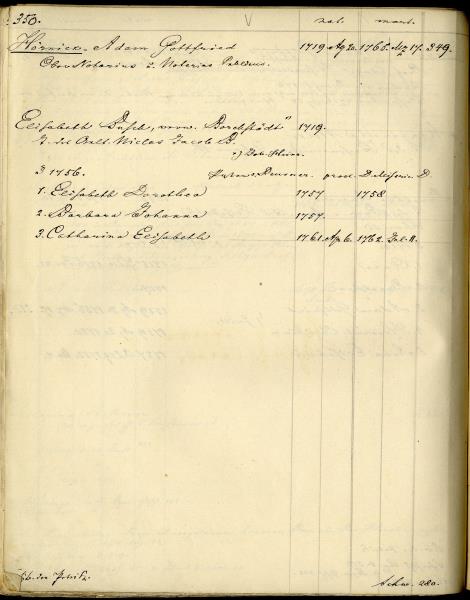 350. nat. mort.
Hörnick. Adam Gottfried 1719. Ag 20. 1765. Mz 17. 349.
Ober Notarius & Notarius Publicus.
Elisabeth Busch, verw. Borchstädt 1719.
T. des Aelt. Niclas Jacob B.
3 1756.
1. Elisabeth Dorothea 1757 1758
2. Barbara Johanna 1757.
3. Catharina Elisabeth 1761. Ap 6. 1762. Jul. 11.
Schw. 280.